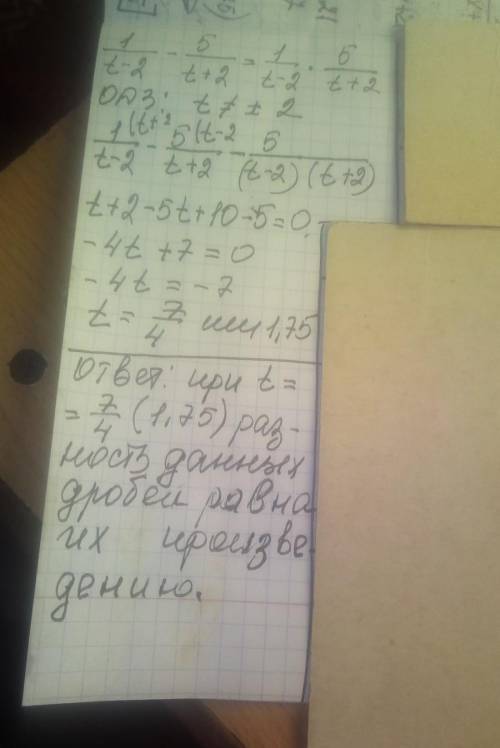 1/(t-2) - 5/(t+2) = 1/(t-2) · 5/(t+2)
ОДЗ: t ≠ ± 2
1(t+2/(t-2) - 5(t-2/(t+2) - 5/((t-2)(t+2))
t+2-5t+10-5=0
-4t+7=0
-4t=-7
t= 7/4 или 1,75
Ответ: при t=
= 7/4 (1,75) раз-
ность данных
дробей равна
их произве-
дению.